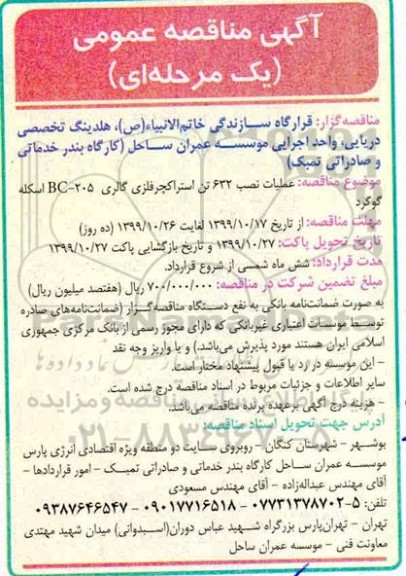 آگهی مناقصه عمومی
(یک مرحله‌ای)
مناقصه‌گزار: قرارگاه سازندگی خاتم‌الانبیاء(ص)، هلدینگ تخصصی
دریایی، واحد اجرایی موسسه عمران ساحل (کارگاه بندر خدماتی
و صادراتی تمبک)
موضوع مناقصه: عملیات نصب ۶۳۲ تن استراکچرفلزی گالری BC-۲۰۵ اسکله
گوگرد
مهلت مناقصه: از تاریخ ۱۳۹۹/۱۰/۱۷ لغایت ۱۳۹۹/۱۰/۲۶ (ده روز)
تاریخ تحویل پاکت: ۱۳۹۹/۱۰/۲۷ و تاریخ بازگشایی پاکت ۱۳۹۹/۱۰/۲۷
مدت قرارداد: شش ماه شمسی از شروع قرارداد.
مبلغ تضمین شرکت در مناقصه: ۷۰۰/۰۰۰/۰۰۰ ریال (هفتصد میلیون ریال)
به صورت ضمانت‌نامه بانکی به نفع دستگاه مناقصه‌گزار (ضمانت‌نامه‌های صادره
توسط موسسات اعتباری غیربانکی که دارای مجوز رسمی از بانک مرکزی جمهوری
اسلامی ایران هستند مورد پذیرش می‌باشد.) و یا واریز وجه نقد
- این موسسه در رد یا قبول پیشنهاد مختار است.
سایر اطلاعات و جزئیات مربوط در اسناد مناقصه درج شده است.
- هزینه درج آگهی برعهده برنده مناقصه می‌باشد.
آدرس جهت تحویل اسناد مناقصه:
بوشهر - شهرستان کنگان - روبروی سایت دو منطقه ویژه اقتصادی انرژی پارس
موسسه عمران ساحل کارگاه بندر خدماتی و صادراتی تمبک - امور قراردادها -
آقای مهندس عبداله‌زاده - آقای مهندس مسعودی
تلفن: ۵-۰۷۷۳۱۳۷۸۷۰۲ - ۰۹۰۱۷۷۱۶۵۱۸ - ۰۹۳۸۷۶۴۶۵۴۷
تهران - تهران‌پارس بزرگراه شهید عباس دوران(اسبدوانی) میدان شهید مهتدی
معاونت فنی - موسسه عمران ساحل